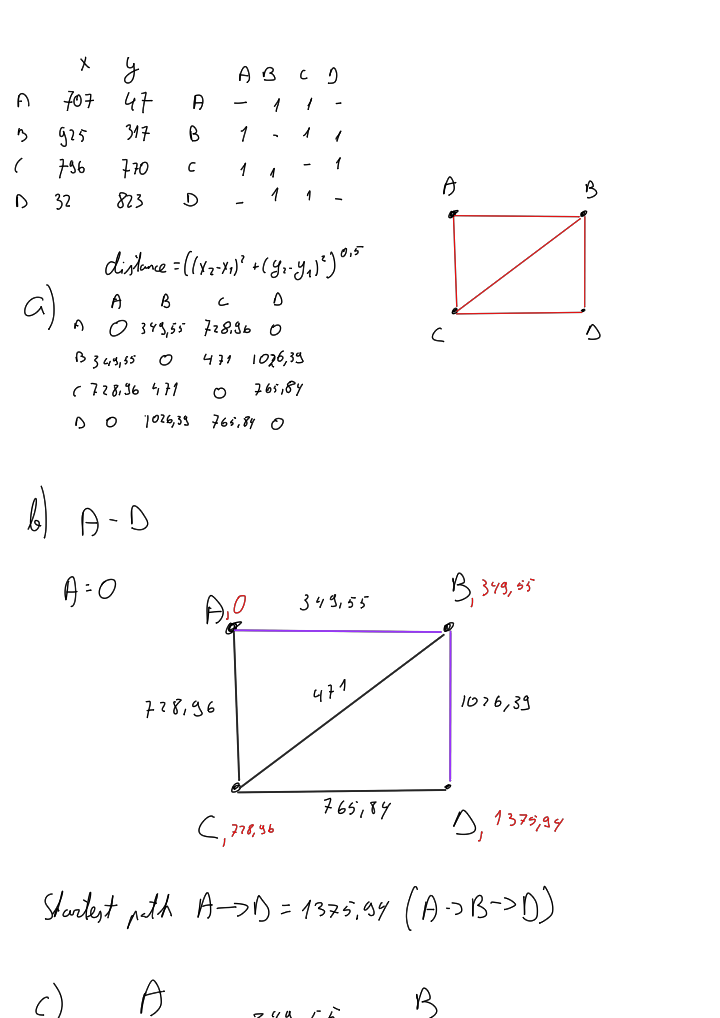 x y
A B C D
A 707 47 A - 1 1 -
B 925 317 B 1 - 1 1
C 796 770 C 1 1 - 1
D 32 823 D - 1 1 -
A B
C D
distance = ((x₂-x₁)² + (y₂-y₁)²)^0,5
a)
A B C D
A 0 349,55 728,96 0
B 349,55 0 471 1026,39
C 728,96 471 0 765,84
D 0 1026,39 765,84 0
b) A - D
A = 0
A, 0 349,55 B, 349,55
471
728,96 1026,39
765,84
C, 728,96 D, 1375,94
Shortest path A -> D = 1375,94 (A -> B -> D)
c) A 349,55 B